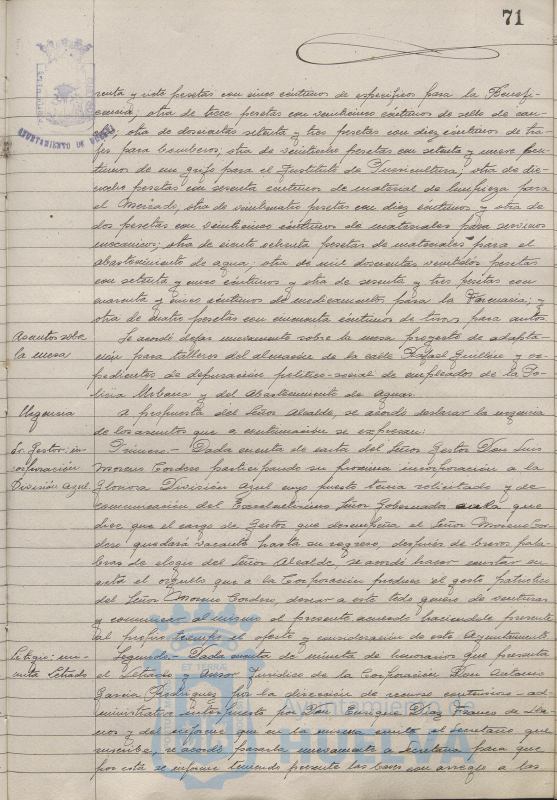 71
AYUNTAMIENTO DE HUELVA
renta y ocho pesetas con cinco céntimos de específicos para la Benefi-
cencia; otra de trece pesetas con veinticinco céntimos de sello de cau-
cho, otra de doscientas setenta y tres pesetas con diez céntimos de tra-
jes para bomberos; otra de veintiocho pesetas con setenta y nueve cén-
timos de un grifo para el Instituto de Puericultura; otra de die-
ciocho pesetas con sesenta céntimos de material de limpieza para
el Mercado, otra de veinticuatro pesetas con diez céntimos y otra de
dos pesetas con veinticinco céntimos de materiales para servicios
mecánicos; otra de ciento ochenta pesetas de materiales para el
abastecimiento de agua, otra de mil doscientas veintidós pesetas
con setenta y cinco céntimos y otra de sesenta y tres pesetas con
cuarenta y cinco céntimos de medicamentos para la Farmacia; y
otra de cuatro pesetas con cincuenta céntimos de tiras para autos
Asuntos sobre
la mesa
Se acordó dejar nuevamente sobre la mesa proyecto de adapta-
ción para talleres del almacén de la calle Rafael Guillén y ex-
pedientes de depuración político-social de empleados de la Po-
licía Urbana y del Abastecimiento de Aguas.
Urgencia
A propuesta del Señor Alcalde, se acordó declarar la urgencia
de los asuntos que a continuación se expresan:
Sr. Gestor: in-
corporación
División Azul.
Primero.- Dada cuenta de carta del Señor Gestor Don Luis
Moreno Cordero participando su próxima incorporación a la
Gloriosa División Azul cuyo puesto tenía solicitado y de
comunicación del Excelentísimo Señor Gobernador en la que
dice que el cargo de Gestor que desempeña el Señor Moreno Cor-
dero quedará vacante hasta su regreso, después de breves pala-
bras de elogio del Señor Alcalde, se acordó hacer constar en
acta el orgullo que a la Corporación produce el gesto patriótico
del Señor Moreno Cordero, desear a este todo género de venturas
y comunicar al mismo el presente acuerdo haciéndole presente
al propio tiempo el afecto y consideración de este Ayuntamiento.
Litigio: mi-
nuta Letrado
Segundo.- Dada cuenta de minuta de honorarios que presenta
el Letrado y Asesor Jurídico de la Corporación Don Antonio
García Rodríguez por la dirección de recurso contencioso-ad-
ministrativo interpuesto por Don Enrique Díaz Franco de Lla-
nos y del informe que en la misma emite el Secretario que
suscribe, se acordó pasarla nuevamente a Secretaría para que
por esta se informe teniendo presente las bases con arreglo a las
ET TERRA
Ayuntamiento de
HUELVA